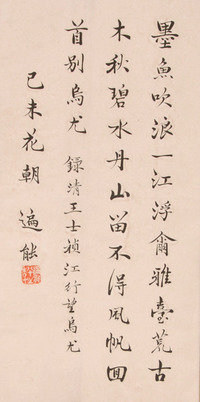 墨魚吹浪一江浮爾雅臺荒古
木秋碧水丹山留不得風帆回
首別烏尤 錄清王士禎江行望烏尤
己未花朝 遍能